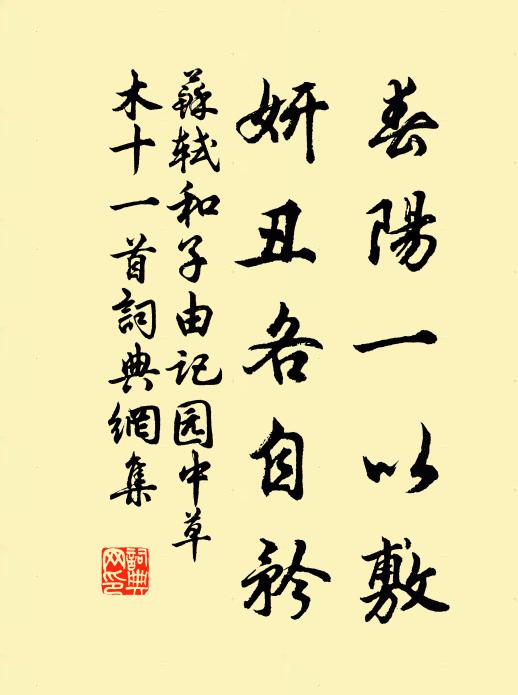 春陽一以敷
妍丑各自矜
蘇軾和子由记园中草
木十一首詞典網集
詞典網印